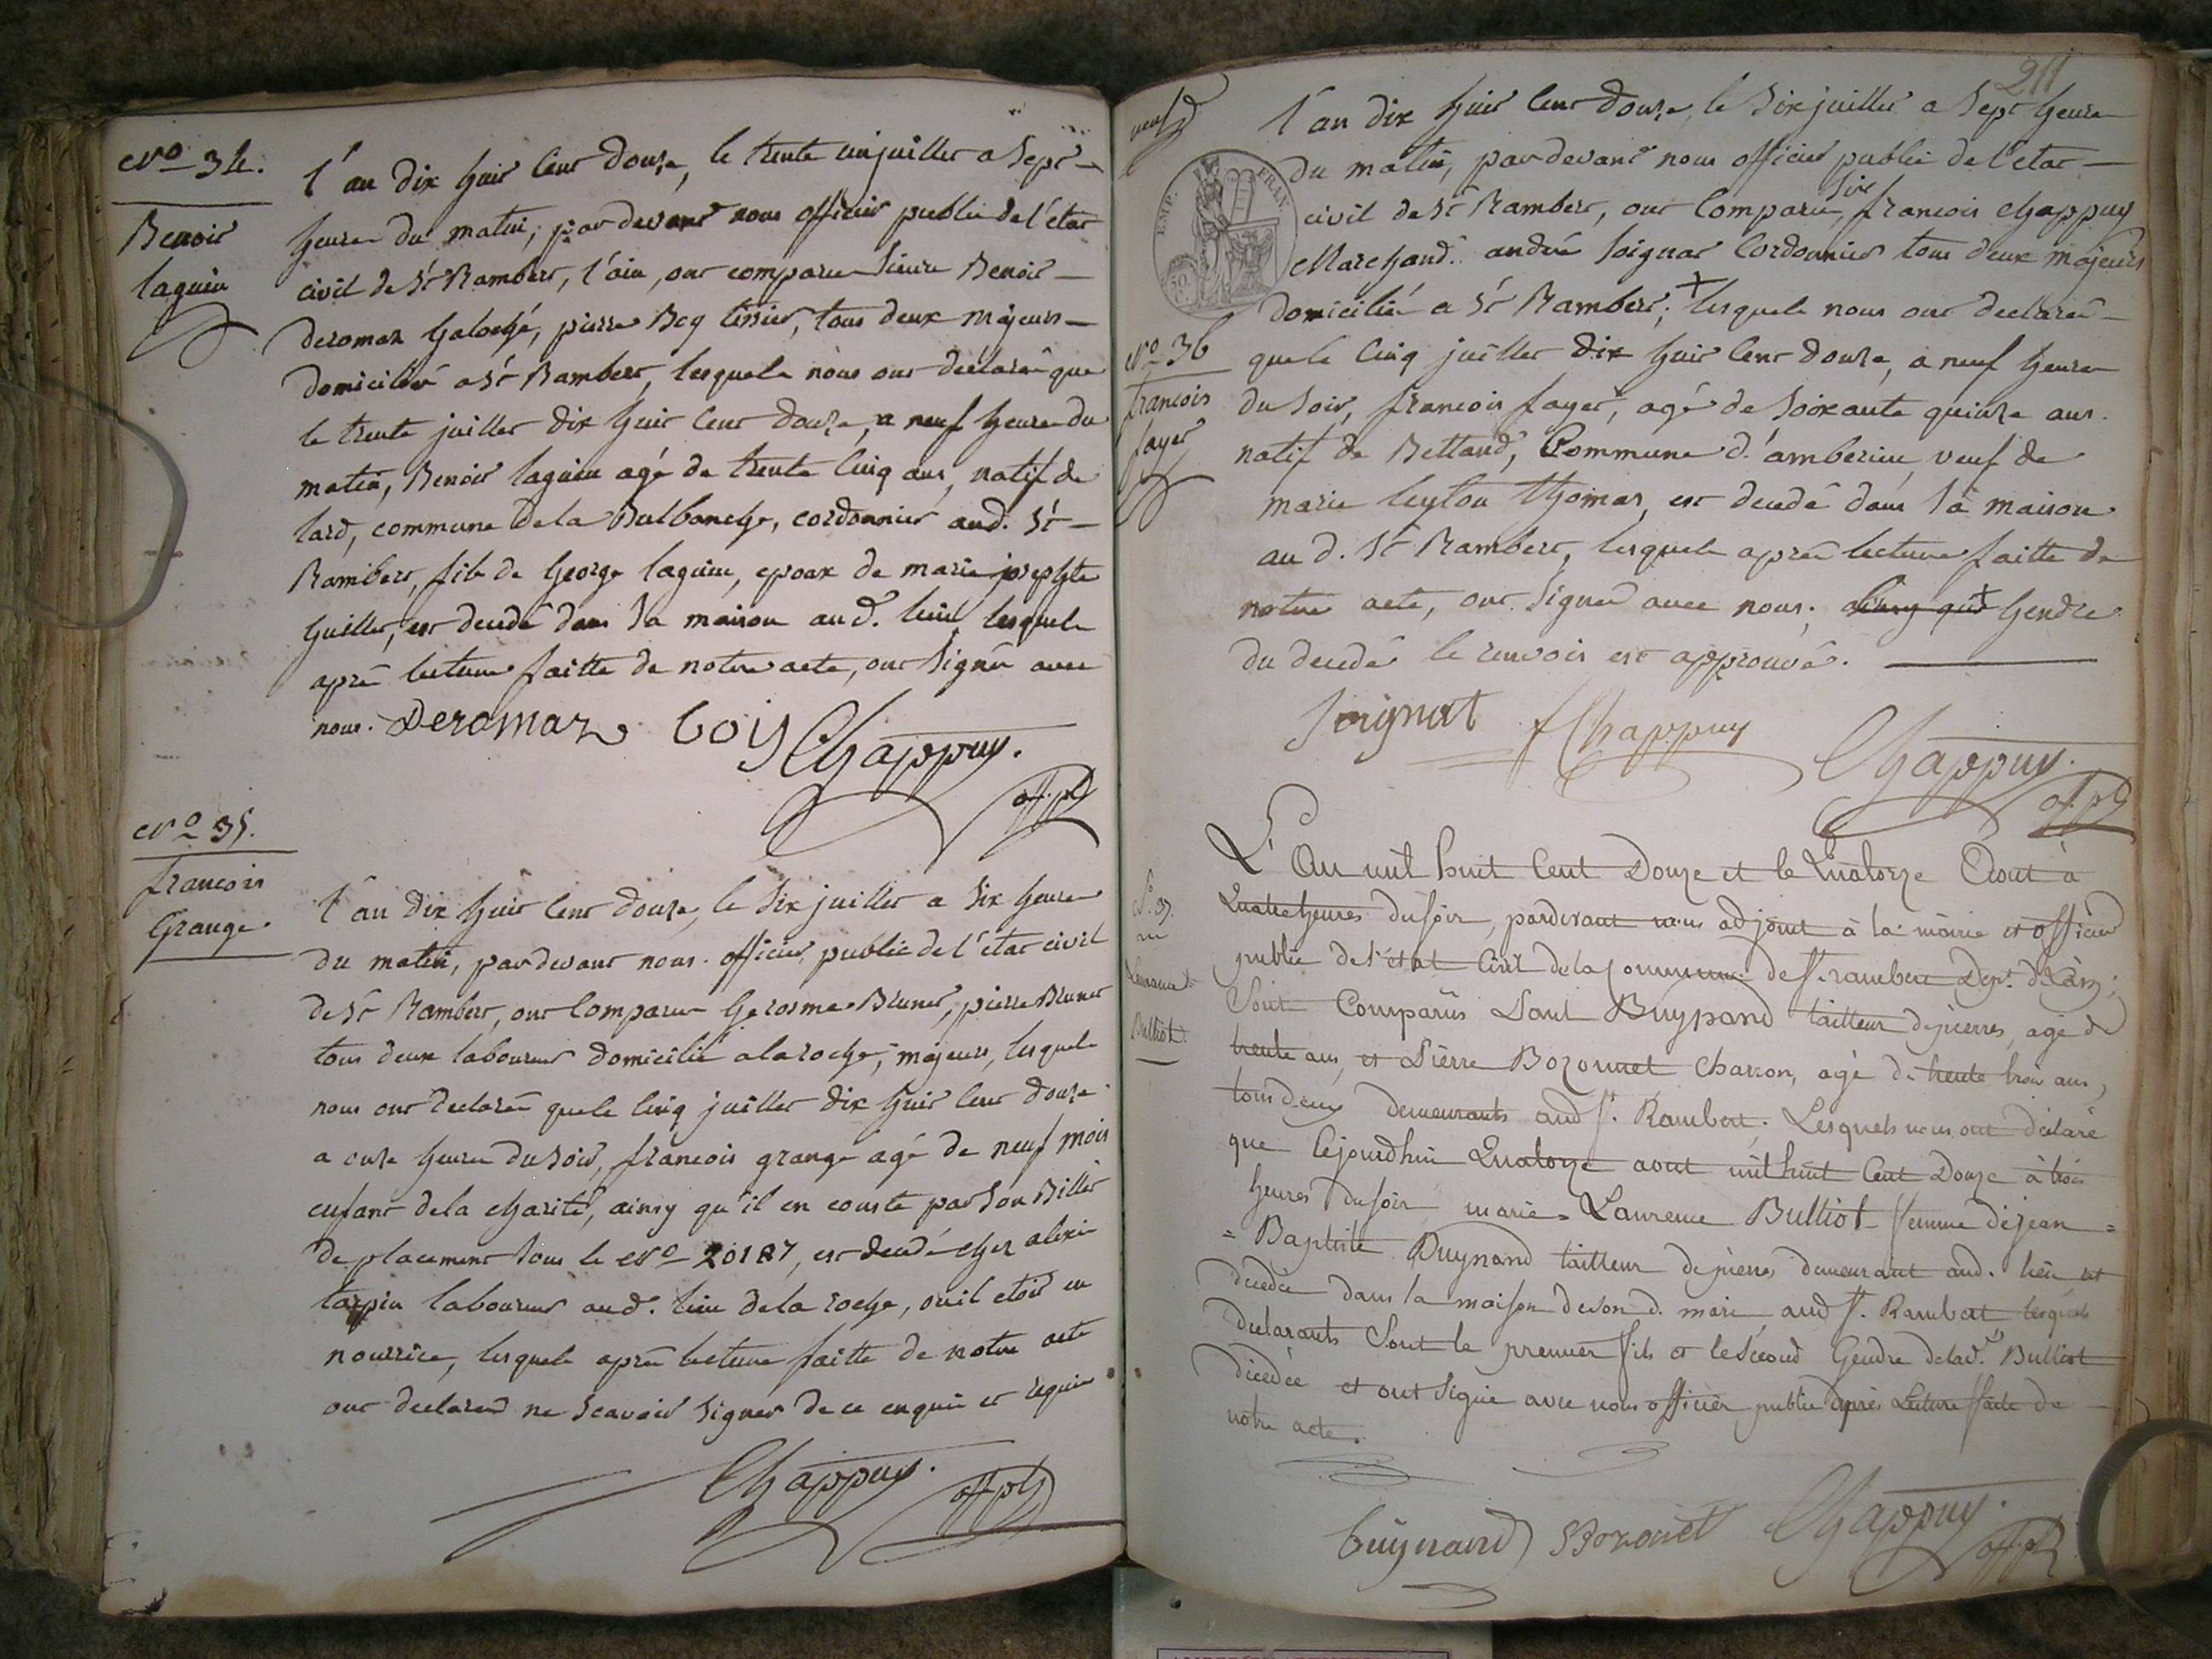 N.o 34.
Benoit
laguin
l'an dix huit cent douze, le trente un juillet a sept
heures du matin, par devant nous officier public de l'état
civil de St Rambert, l'ain, ont comparu sieurs Benoit
deromaz galoché, pierre Bcy tissier, tous deux majeurs
domiciliés a St Rambert, lesquels nous ont declarés que
le trente juillet dix huit cent douze, a neuf heures du
matin, Benoit laguin agé de trente cinq ans, natif de
lard, commune de la Balbanche, cordonnier aud. St
Rambert, fils de George laguin, epoux de marie josephte
guillet, est decedé dans sa maison aud. lieu, lesquels
après lecture faitte de notre acte, ont signés avec
nous. Deromaz Coiy Chappuy.
off. pb
N.o 35.
francois
Grange
l'an dix huit cent douze, le six juillet a six heures
du matin, par devant nous officier public de l'état civil
de St Rambert, ont comparu gerosme Brunet, pierre Brunet
tous deux laboureurs domiciliés a la roche, majeurs, lesquels
nous ont declarés que le cinq juillet dix huit cent douze
a onze heures du soir, francois grange agé de neuf mois
enfant de la charité, ainsy qu'il en conste par son Billet
de placement sous le N.o 20187, est decedé chez alexis
tarpin laboureur aud. lieu de la roche, ou il etoit en
nourrice, lesquels après lecture faitte de notre acte
ont declarés ne scavoir signer de ce enquis et requis
Chappuy.
off. pb
211
neuf
EMP. FRAN.
50 C.
l'an dix huit cent douze, le six juillet a sept heures
du matin, par devant nous officier public de l'état
civil de St Rambert, ont comparu, sieurs francois Chappuy
Marchand. andré soignat cordonnier tous deux majeurs
domiciliés a St Rambert; + lesquels nous ont declarés
N.o 36
francois
fayet
que le cinq juillet dix huit cent douze, a neuf heures
du soir, francois fayet, agé de soixante quinze ans
natif de Bettand, Commune d'amberieu veuf de
marie leyton thomas, est decedé dans sa maison
au d. St Rambert, lesquels après lecture faitte de
notre acte, ont signés avec nous. ainsy que + Gendre
du decedé le renvois est approuvé.
Soignat f Chappuy Chappuy.
off. pb
L'An mil huit Cent Douze et le Quatorze Aout à
N. 37.
Laurence
Bulliot
Quatre heures du soir, pardevant nous adjoint à la mairie et officier
public de l'état Civil de la Commune de St rambert Dept. de l'ain;
Sont Comparus Paul Buynand tailleur de pierres, agé de
trente ans, et Pierre Bozonnet charron, agé de trente trois ans,
tous deux demeurants aud St. Rambert, Lesquels nous ont déclaré
que cejourdhui Quatorze aout mil huit Cent Douze à trois
heures du soir, marie=Laurence Bulliot femme de jean=
=Baptiste Buynand tailleur de pierres, demeurant aud. lieu est
décédée dans la maison de son d. mari aud St. Rambert lesquels
declarants Sont le premier fils et le Second Gendre de lad.e Bulliot
décédée et ont signé avec nous officier public après Lecture faite de
notre acte.
buynand Bozonet Chappuy.
off. pb